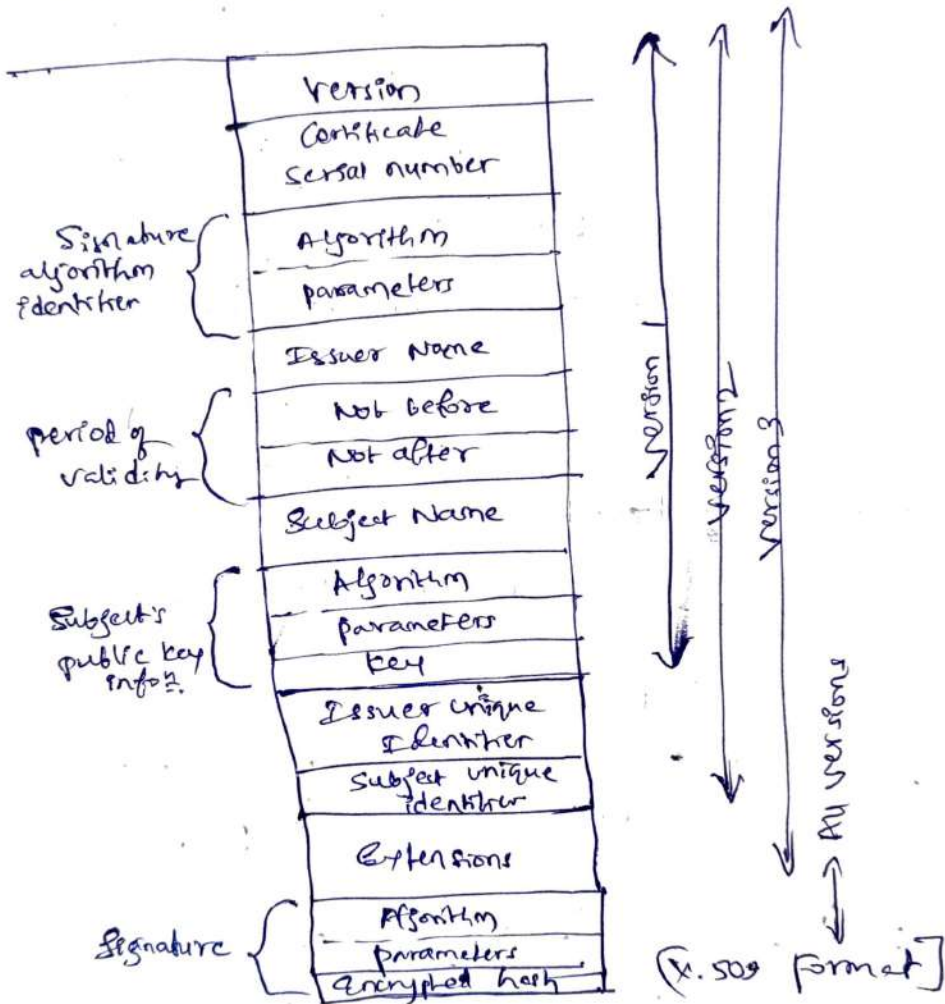 Version
Certificate
Serial number
Signature
algorithm
identifier
Algorithm
parameters
Issuer Name
period of
validity
Not before
Not after
Subject Name
Subject's
public key
infon.
Algorithm
parameters
key
Issuer unique
Identifier
Subject unique
identifier
Extensions
Signature
Algorithm
parameters
encrypted hash
version 1
version 2
version 3
All versions
[X.509 Format]